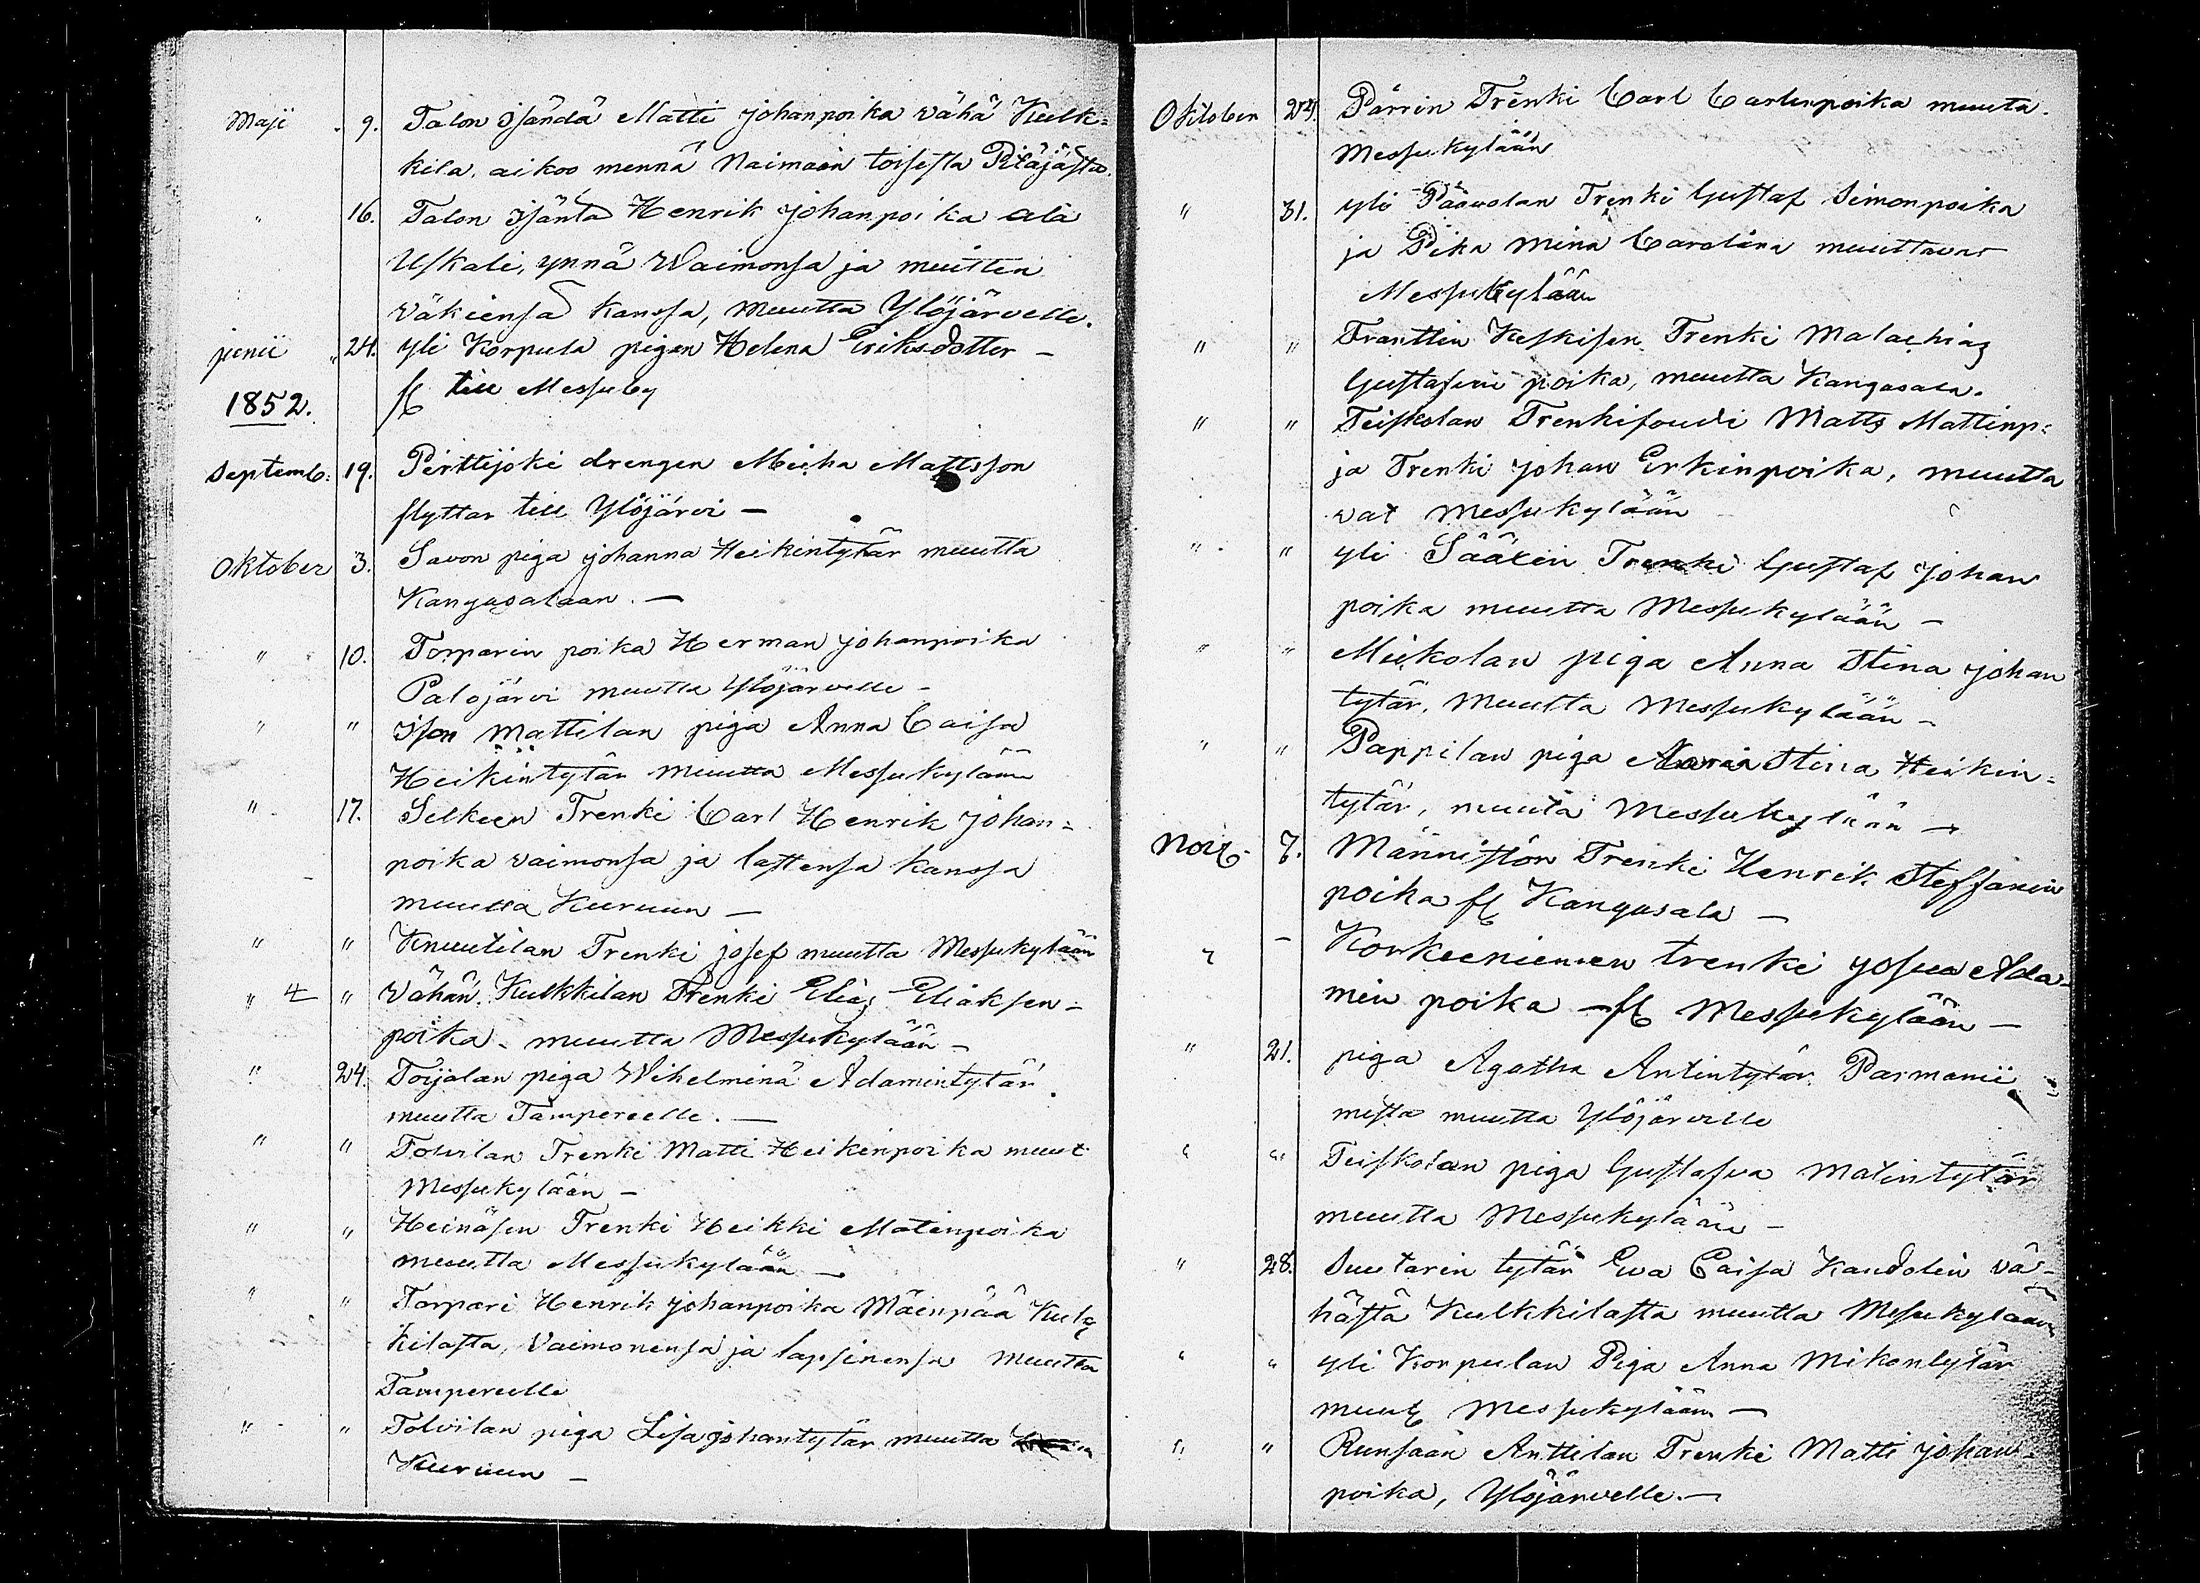 Maji 9. Talon Isändä Matti Johanpoika Vähä Kulk=
kila, aikoo mennä Naimaan toisesta Pitäjästa.
" 16. Talon Isäntä Henrik Johanpoika ala
Uskali, ynnä Waimonsa ja muitten
väkiensä kanssa, muutta Ylöjärvelle.
junii 24. Yli Korpula pigan Helena Eriksdotter —
1852. fl till Messuby
Septemb: 19. Perttijoki drengen Micha Mattsson
flyttar till Ylöjärvi —
Oktober 3. Savon piga Johanna Heikintytär muutta
Kangasalaan. —
" 10. Torparin poika Herman Johanpoika
Palojärvi muutta Ylöjärvelle —
" " Ison Mattilan piga Anna Caisa
Heikintytär muutta Messukylään
" 17. Selkeen Trenki Carl Henrik Johan=
poika vaimonsa ja lastensa kanssa
muutta Kuruun —
" " Knuutilan Trenki Josef muutta Messukylään
" " Vähän Kulkkilan Trenki Elias Eliaksen=
poika muutta Messukylään —
" 24. Toijalan piga Wihelmina Adamintytär
muutta Tampereelle. —
" " Tolvilan Trenki Matti Heikinpoika muut
Messukylään —
" " Heinäsen Trenki Heikki Matinpoika
muutta Messukylään —
" " Torpari Henrik Johanpoika Mäenpää Kulk
kilasta, Vaimonensa ja lapsinensa muutta
Tampereelle
" " Tolvilan piga Lisa Johantytär muutta
Kuruun —
Oktober 24. Pärrin Trenki Carl Carlinpoika muuta.
Messukylään
" 31. Yli Pääwolan Trenki Gustaf Simonpoika
ja Pika Mina Carolina muuttavat
Messukylään
" " Franttin Keskisen Trenki Malachias
Gustafin poika, muutta Kangasala.
" " Teiskolan Trenkifoudi Matts Mattinp=
ja Trenki Johan Erkinpoika, muutta
vat Messukylään
" " Yli Säätin Trenki Gustaf Johan
poika muutta Messukylään —
" " Mickolan piga Anna Stina Johan
tytär, muutta Messukylään —
" " Pappilan piga Maria Stina Heikin=
tytär, muuta Messukylään —
Novb. 7. Männistön Trenki Henrik Steffanin
poika fl Kangasala —
" — Korkeeniemen trenki Josua Ada-
min poika — fl Messukylään —
" 21. piga Agatha Antintytär Parmanii
mista muutta Ylöjärvelle
" " Teiskolan piga Gustafva Matintytär
muutta Messukylään —
" 28. Suutarin tytär Ewa Caisa Kandolin vä-
hästä Kulkkilasta muutta Messukylään
" " Yli Korpulan Piga Anna Mikontytär
muut Messukylään —
" " Runsaan Anttilan Trenki Matti Johan=
poika, Ylöjärvelle. —